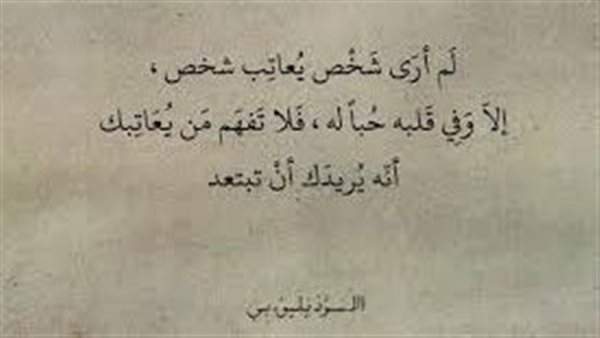 لَم أرَى شَخْص يُعاتِب شخص ،
إلاَ وَفِي قَلبه حُباً له ، فَلا تَفهَم مَن يُعَاتِبك
أنَه يُريدَك أنَّ تبتعد